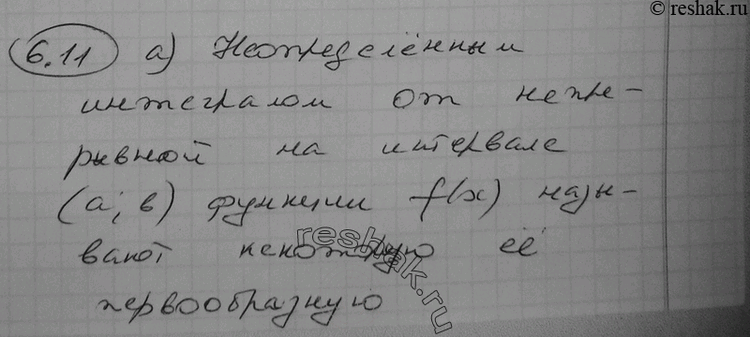 © reshak.ru
6.11 а) Неопределённым
интегралом от непре-
рывной на интервале
(a; в) функции f(x) назы-
вают некоторую её
первообразную
reshak.ru